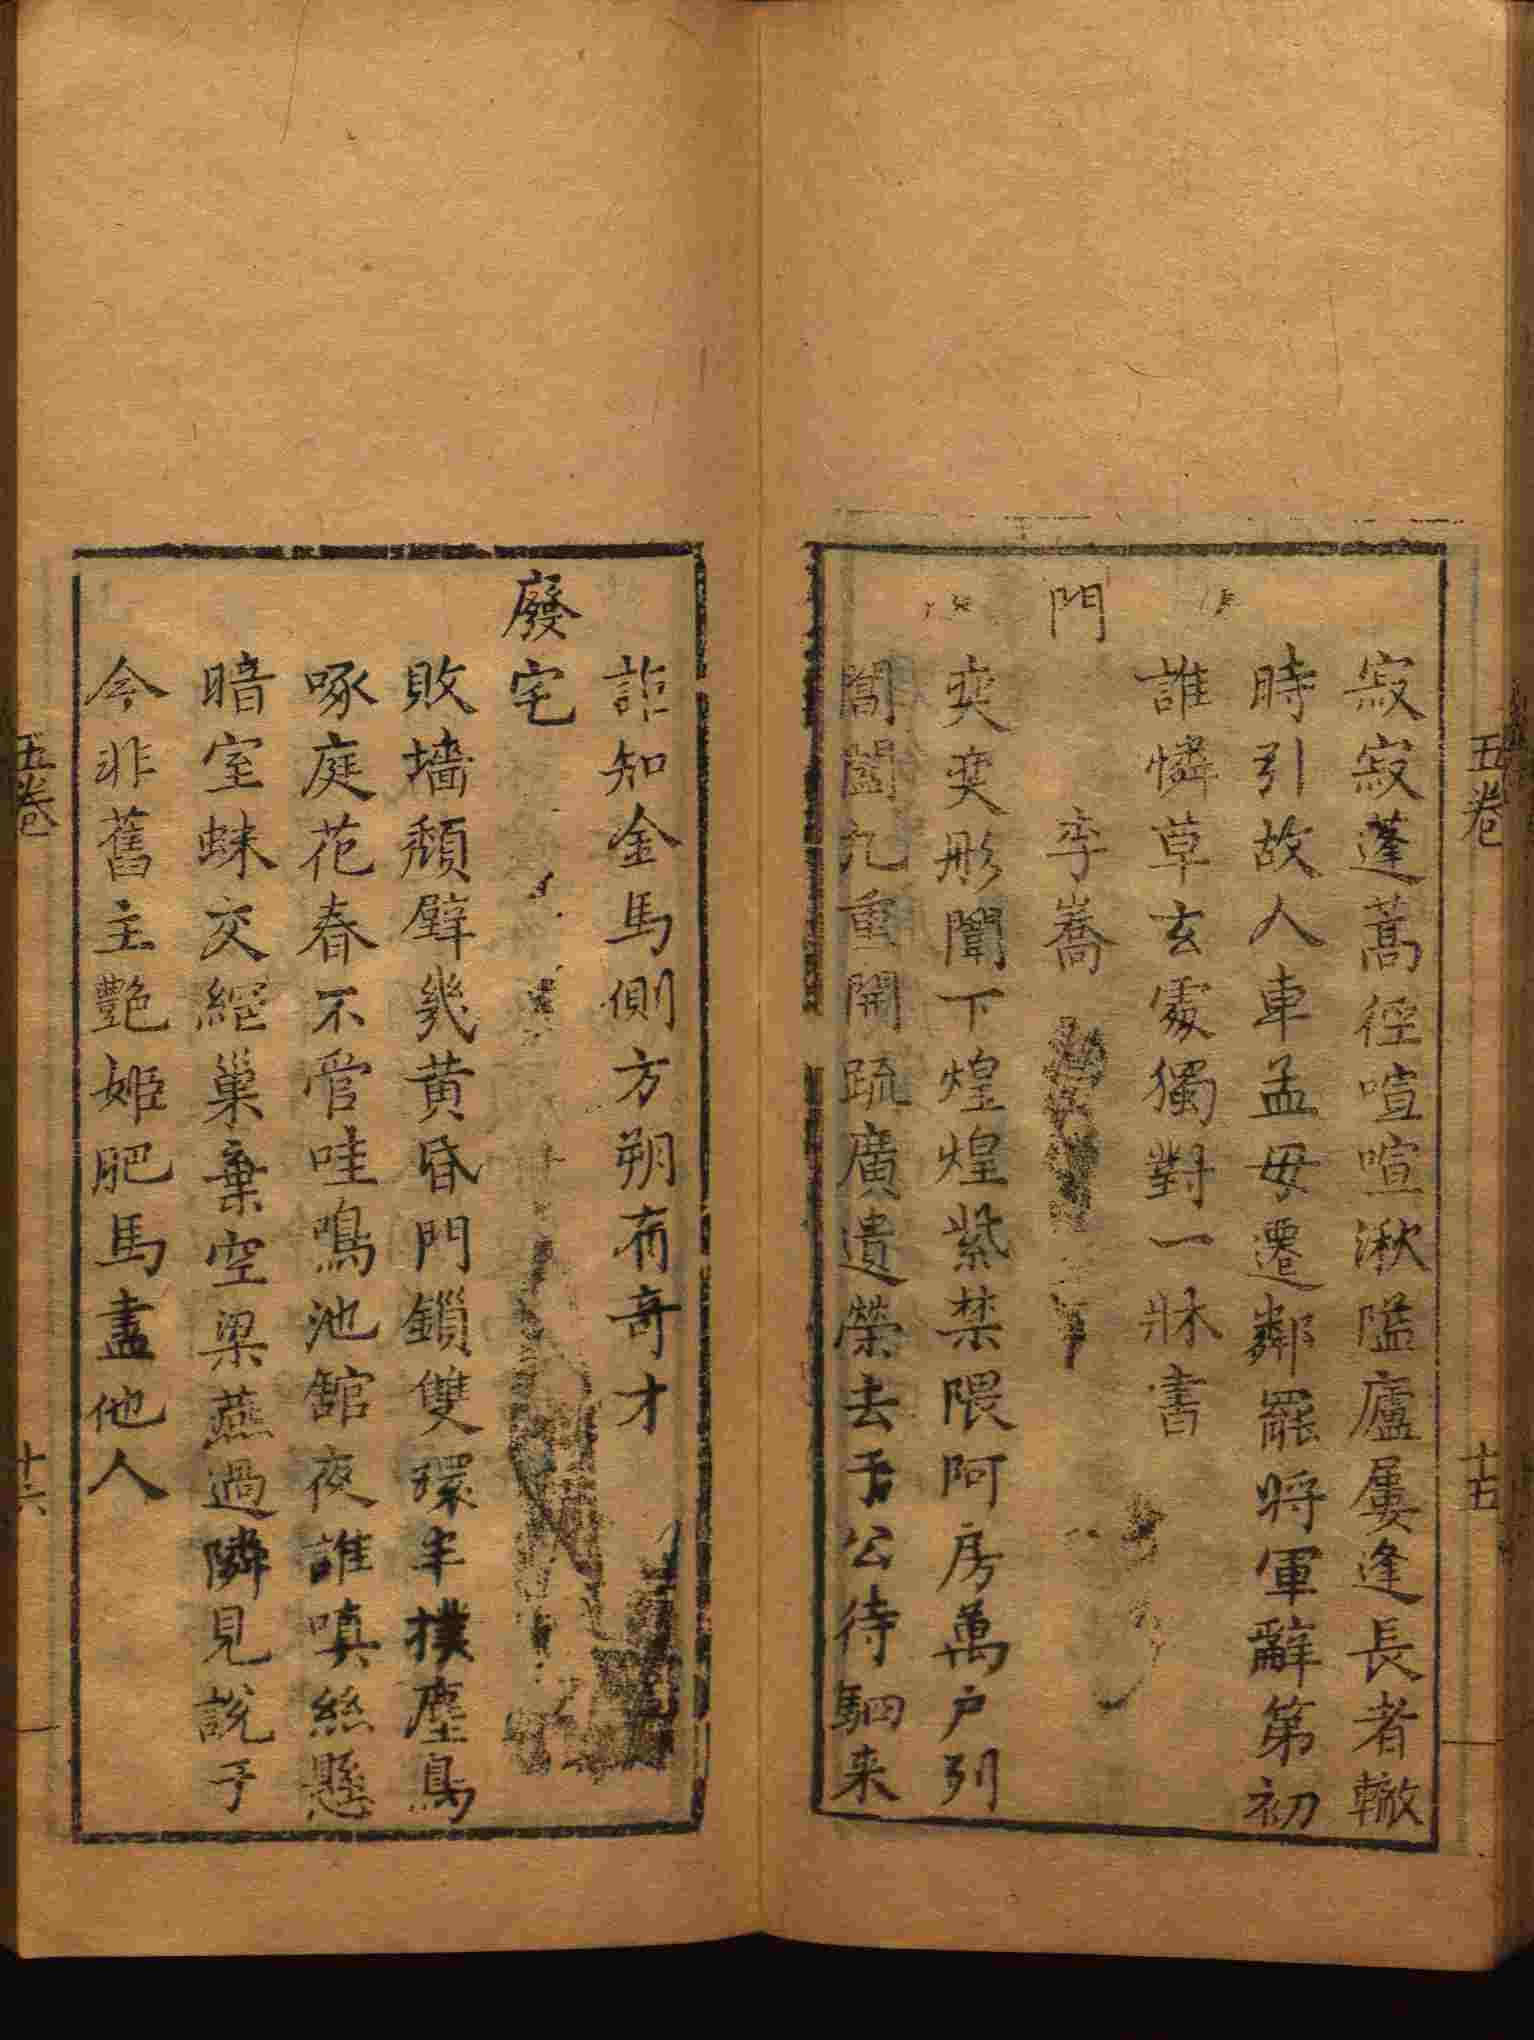 五卷 十五
寂寂蓬蒿徑喧喧湫隘廬屢逢長者轍
時引故人車孟母遷鄰罷將軍辭第初
誰憐草玄處獨對一牀書
門 李嶠
奕奕彤闈下煌煌紫禁隈阿房萬户列
閶闔九重開疏廣遺榮去于公待駟来
詎知金馬側方朔有奇才
廢宅
敗墻頹壁幾黄昏門鎖雙環半撲塵鳥
啄庭花春不管哇鳴池舘夜誰嗔絲懸
暗室蛛交網巢棄空梁燕過隣見說予
今非舊主艷姬肥馬盡他人
五卷 十六